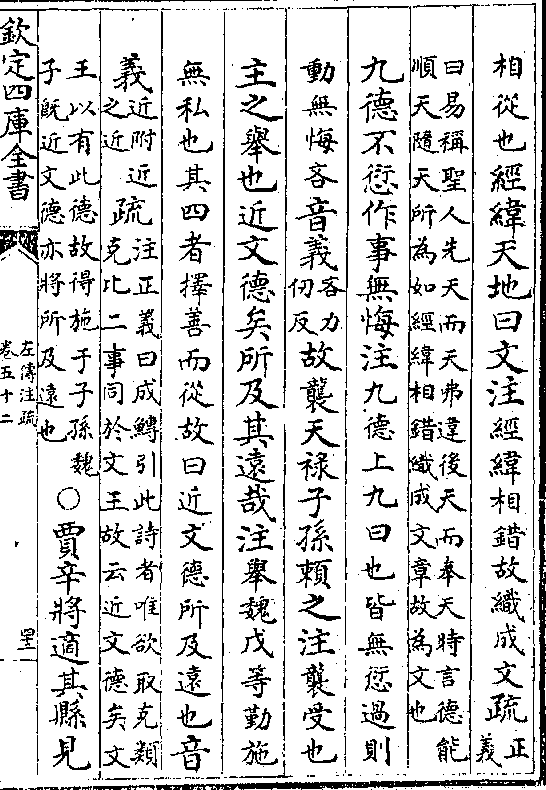 相從也經緯天地曰文注經緯相錯故織成文疏正義
曰易稱聖人先天而天弗違後天而奉天時言德能
順天隨天所為如經緯相錯織成文章故為文也
九德不愆作事無悔注九德上九曰也皆無愆過則
動無悔吝音義吝力刃反故襲天禄子孫賴之注襲受也
主之舉也近文德矣所及其遠哉注舉魏戊等勤施
無私也其四者擇善而從故曰近文德所及遠也音
義近附近之近疏注正義曰成鱄引此詩者唯欲取克類克比二事同於文王故云近文德矣文
王以有此德故得施于子孫魏
子既近文德亦將所及遠也
○賈辛將適其縣見
欽定四庫全書
左傳注疏
卷五十二